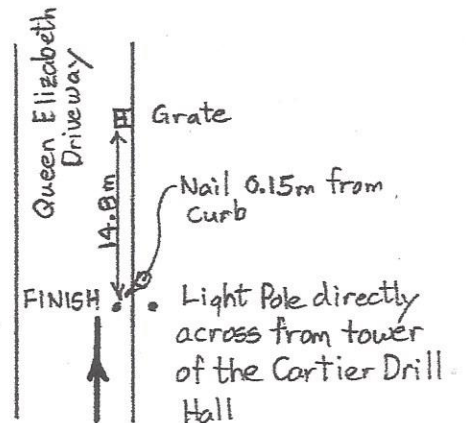 Queen Elizabeth
Driveway
Grate
14.8m
Nail 0.15m from
curb
FINISH
Light Pole directly
across from tower
of the Cartier Drill
Hall